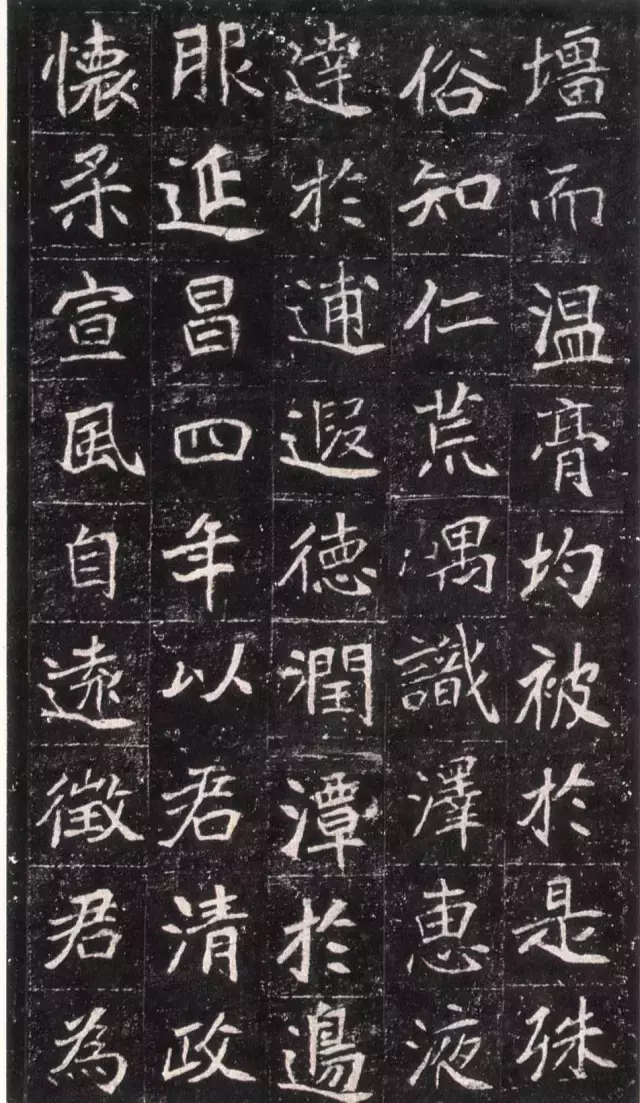 壃而温膏均被於是殊
俗知仁荒嵎識澤惠液
達於逋遐德潤潭於邊
服延昌四年以君清政
懐柔宣風自遠徵君為